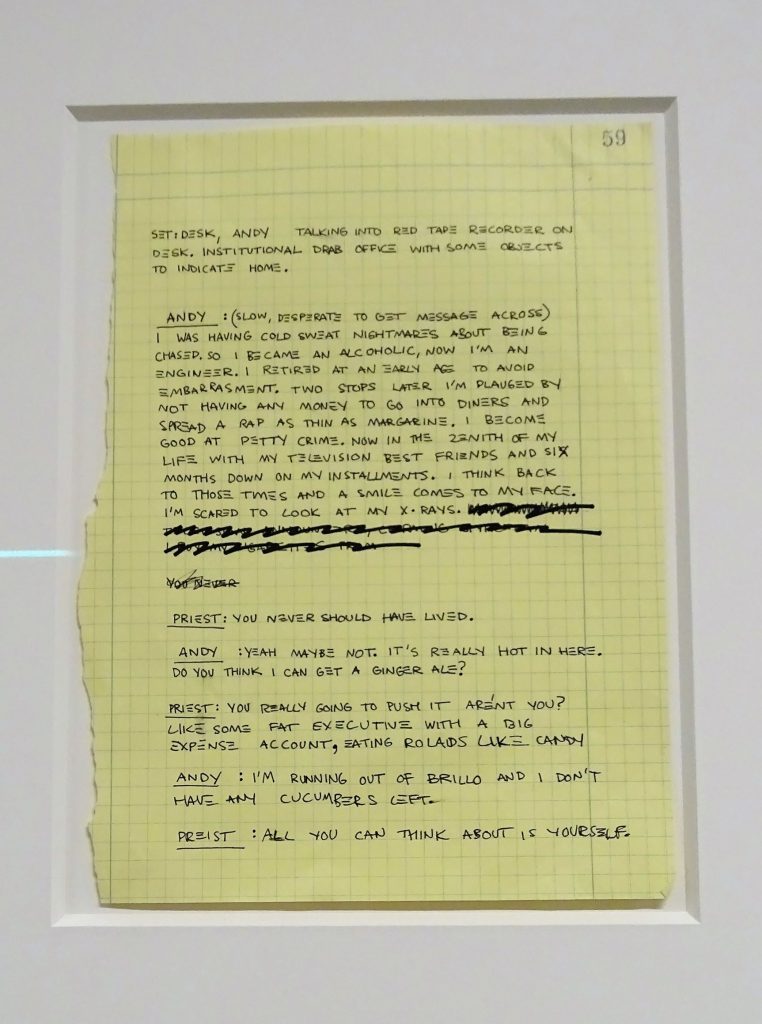 59
SET: DESK, ANDY TALKING INTO RED TAPE RECORDER ON
DESK. INSTITUTIONAL DRAB OFFICE WITH SOME OBJECTS
TO INDICATE HOME.
ANDY : (SLOW, DESPERATE TO GET MESSAGE ACROSS)
I WAS HAVING COLD SWEAT NIGHTMARES ABOUT BEING
CHASED. SO I BECAME AN ALCOHOLIC, NOW I'M AN
ENGINEER. I RETIRED AT AN EARLY AGE TO AVOID
EMBARRASMENT. TWO STOPS LATER I'M PLAUGED BY
NOT HAVING ANY MONEY TO GO INTO DINERS AND
SPREAD A RAP AS THIN AS MARGARINE. I BECOME
GOOD AT PETTY CRIME. NOW IN THE ZENITH OF MY
LIFE WITH MY TELEVISION BEST FRIENDS AND SIX
MONTHS DOWN ON MY INSTALLMENTS. I THINK BACK
TO THOSE TIMES AND A SMILE COMES TO MY FACE.
I'M SCARED TO LOOK AT MY X-RAYS.
YOU NEVER
PRIEST: YOU NEVER SHOULD HAVE LIVED.
ANDY : YEAH MAYBE NOT. IT'S REALLY HOT IN HERE.
DO YOU THINK I CAN GET A GINGER ALE?
PRIEST: YOU REALLY GOING TO PUSH IT ARE'NT YOU?
LIKE SOME FAT EXECUTIVE WITH A BIG
EXPENSE ACCOUNT, EATING ROLAIDS LIKE CANDY
ANDY : I'M RUNNING OUT OF BRILLO AND I DON'T
HAVE ANY CUCUMBERS LEFT.
PREIST : ALL YOU CAN THINK ABOUT IS YOURSELF.